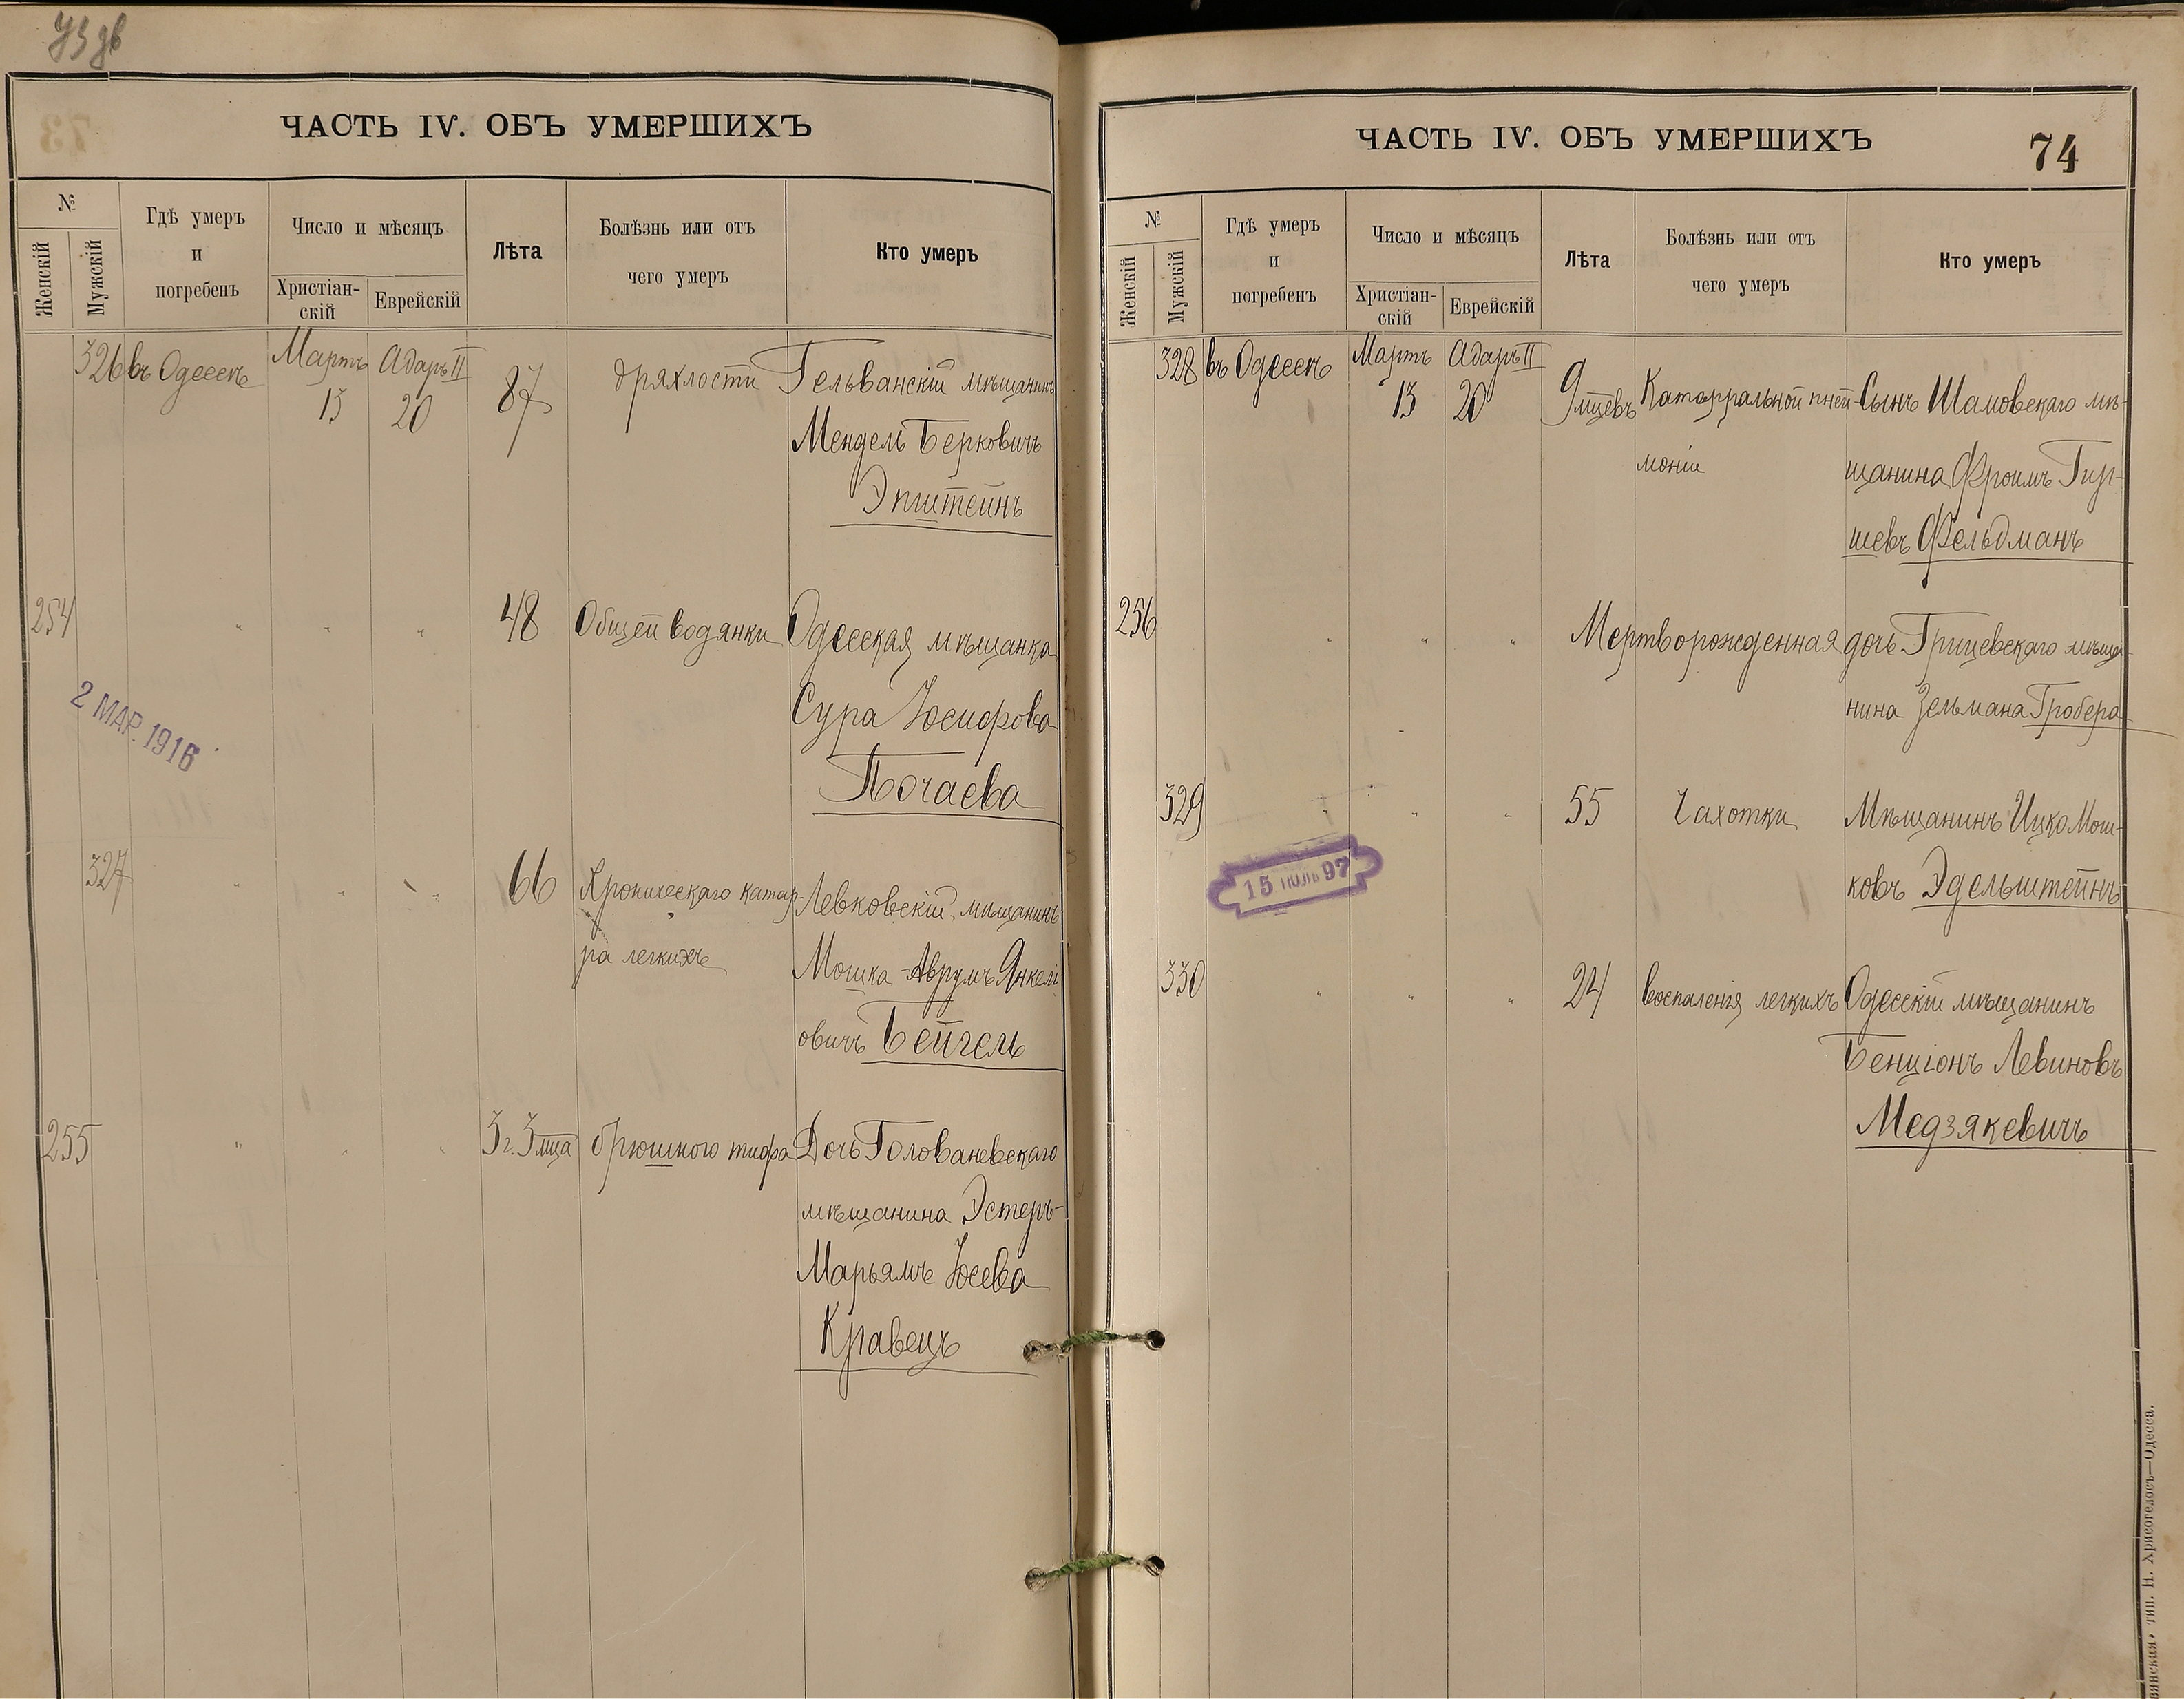 73 об
ЧАСТЬ IV. ОБЪ УМЕРШИХЪ
№
Женскій
Мужскій
Гдѣ умеръ
и
погребенъ
Число и мѣсяцъ
Христіан-
скій
Еврейскій
Лѣта
Болѣзнь или отъ
чего умеръ
Кто умеръ
326 въ Одессѣ Мартъ 13 Адаръ II 20 87 дряхлости Гельванскій мѣщанинъ
Мендель Беркович
Эпштейнъ
254 " " " 48 Общей водянки Одесская мѣщанка
Сура Іосифова
Почаева
2 МАР. 1916
327 " " " 66 Хроническаго катар- Левковскій мѣщанинъ
ра легкихъ Мошка-Аврумъ Янкел
овичъ Бейгель
255 " " " 3 г. 3 мца брюшного тифа Дочь Голованевскаго
мѣщанина Эстеръ-
Марьямъ Іосева
Кравецъ
ЧАСТЬ IV. ОБЪ УМЕРШИХЪ
74
№
Женскій
Мужскій
Гдѣ умеръ
и
погребенъ
Число и мѣсяцъ
Христіан-
скій
Еврейскій
Лѣта
Болѣзнь или отъ
чего умеръ
Кто умеръ
328 въ Одессѣ Мартъ 13 Адаръ II 20 9 мцевъ Катарральной пней- Сынъ Шамовскаго мѣ-
моніи щанина Фроимъ Гир-
шевъ Фельдманъ
256 " " " Мертворожденная дочь Грицевскаго мѣща-
нина Зельмана Гробера
329 " " " 55 Чахотки Мѣщанинъ Ицко Мош-
ковъ Эдельштейнъ
15 ІЮЛЬ 97
330 " " " 24 воспаленія легкихъ Одесскій мѣщанинъ
Бенціонъ Левиновъ
Медзякевичъ
тип. Н. Хрисогелосъ—Одесса.